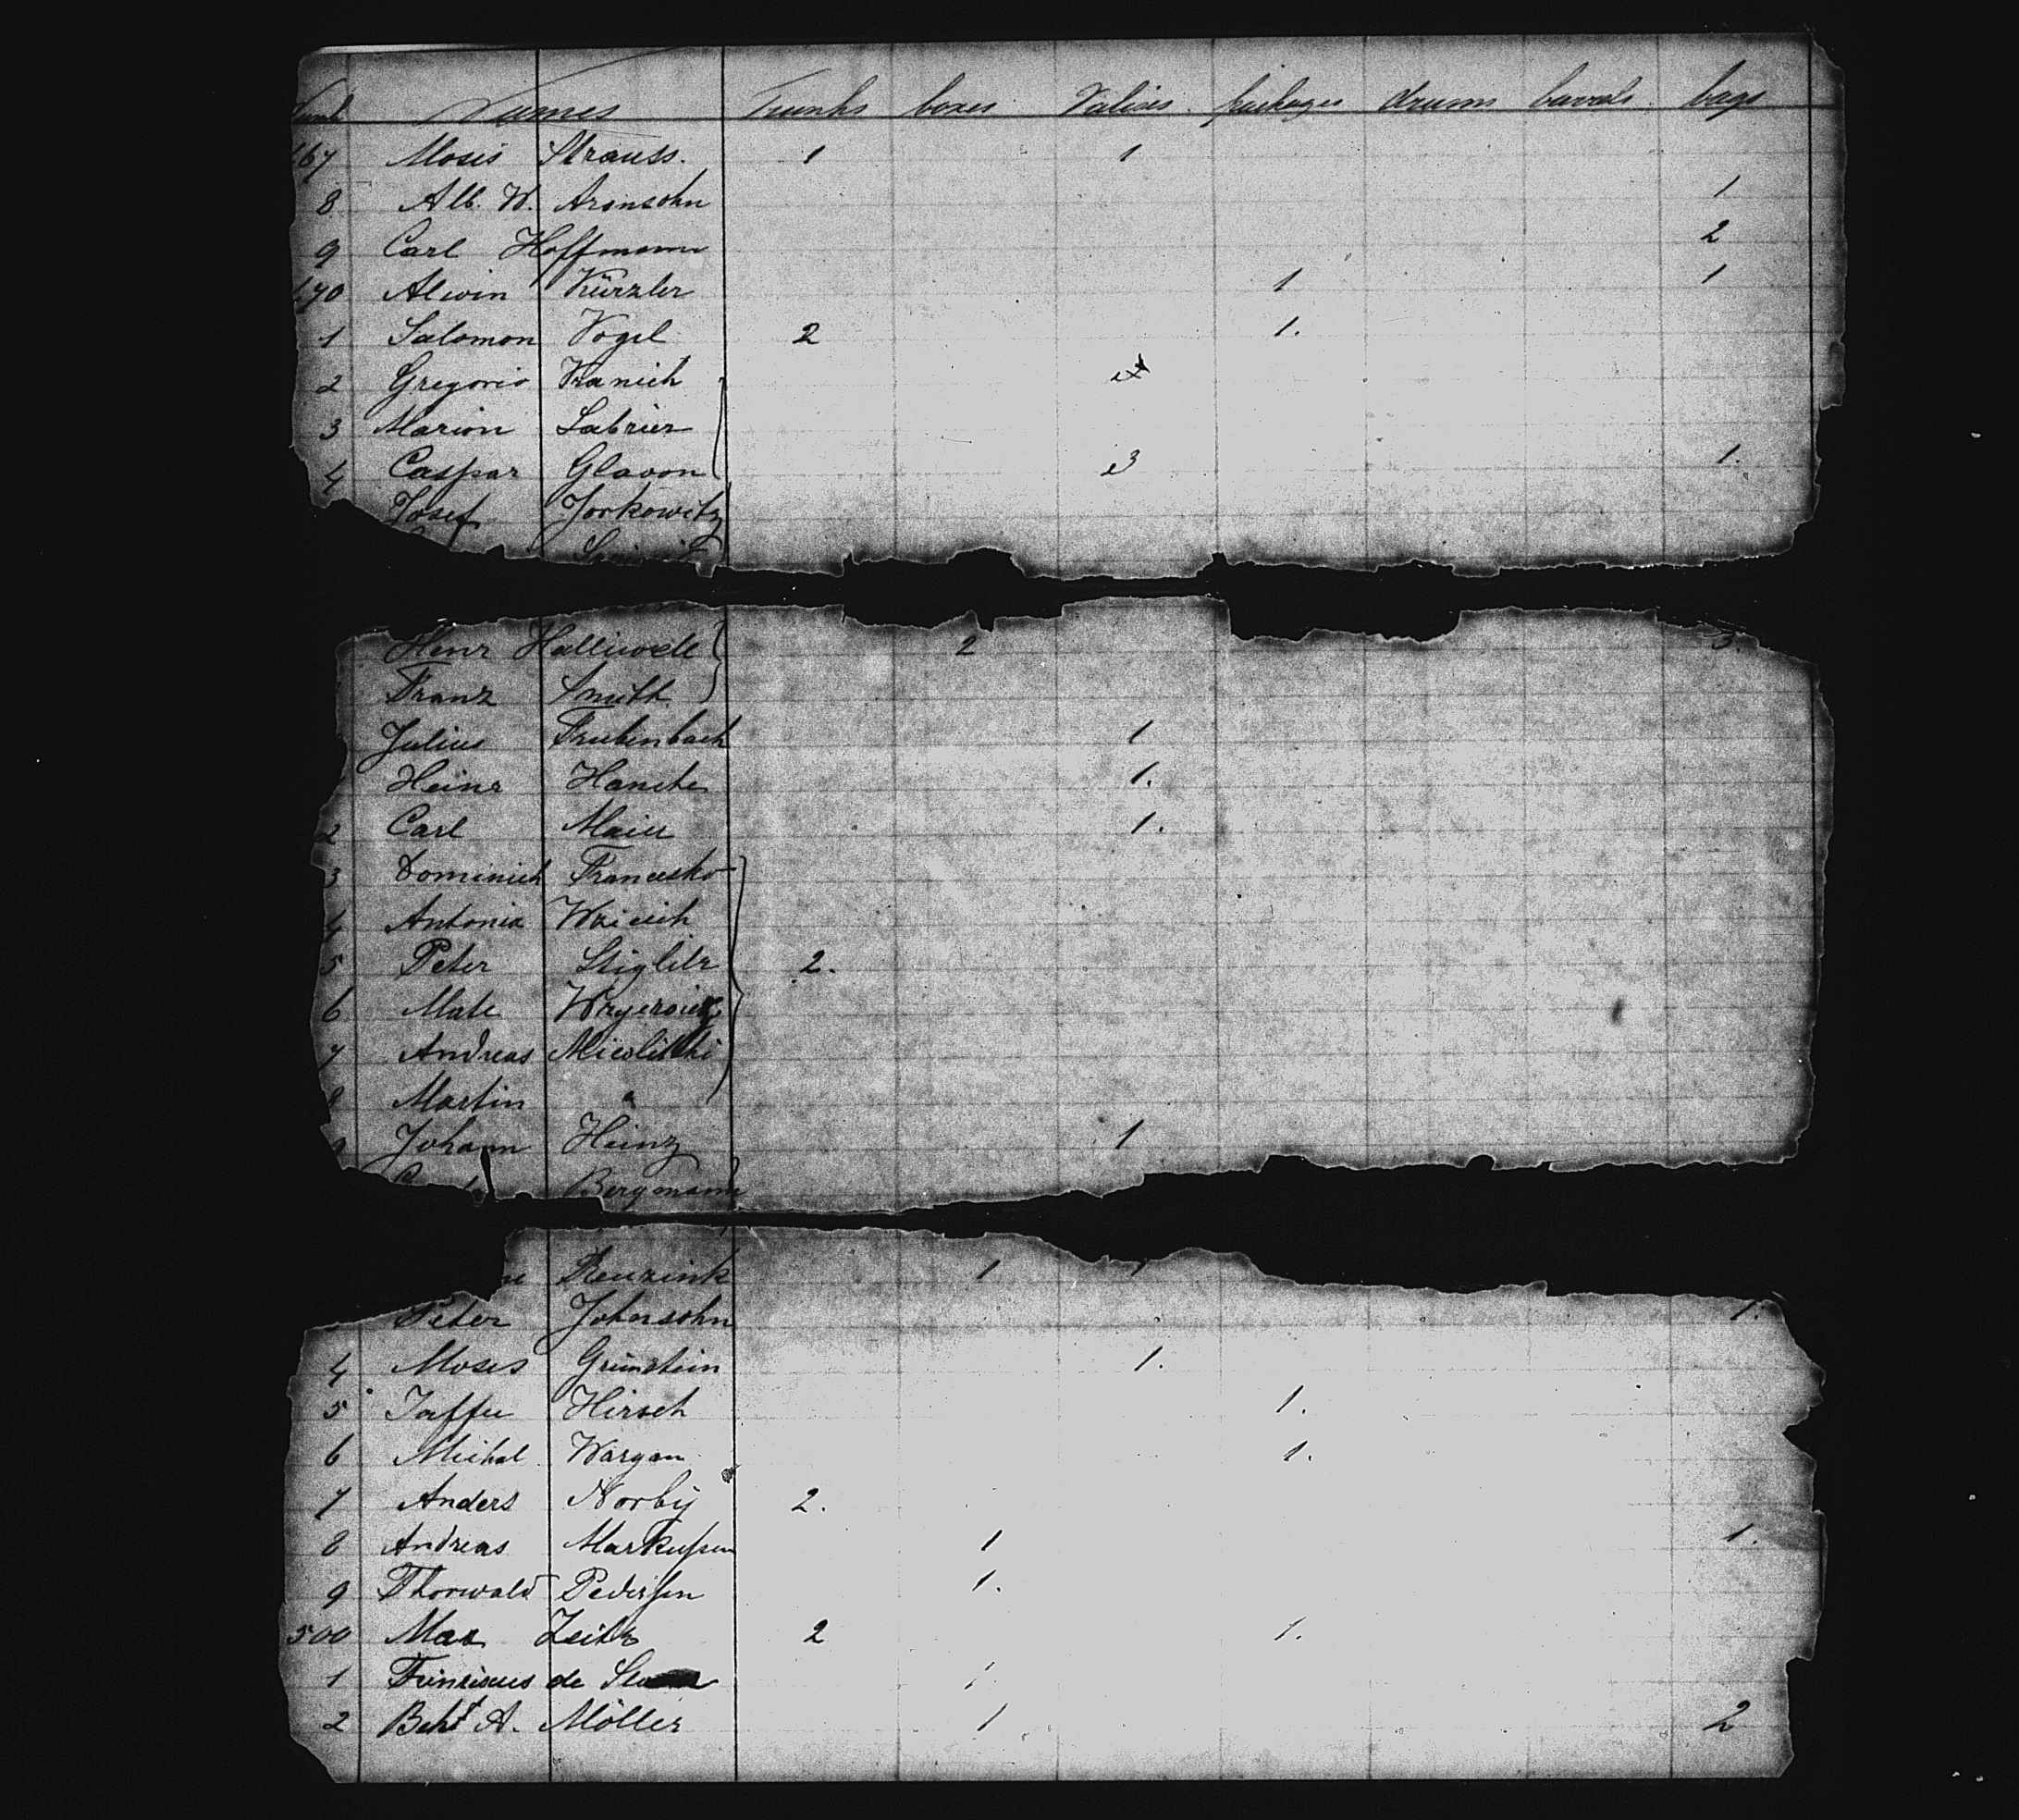 Names Trunks boxes Valises packages drums barrels bags
467 Moses Strauss. 1 1
8 Alb. W. Aronsohn 1
9 Carl Hoffmann 2
470 Alwin Kürzler 1 1
1 Salomon Vogel 2 1.
2 Gregorio Kranich
3 Marion Labrier
4 Caspar Glavon 3 1.
Josef Jorkowitz
Henr Halliwell 2 3.
Franz Smith
Julius 1
Heinr Hansche 1.
2 Carl Maier 1.
3 Dominick Francesko
4 Antonia
5 Peter Stiglitz 2.
6 Mate
7 Andreas
8 Martin "
Johann Heinz 1
Bergmann
Renzink 1 1
Peter Johnsohn 1.
4 Moses Grünstein 1.
5 Jaffee Hirsch 1.
6 Michal Wargan 1.
7 Anders Norby 2.
8 Andreas Markussen 1 1.
9 Thorwald Pedersen 1.
500 Max Zeitz 2 1.
1 de 1
2 A. Möller 1 2